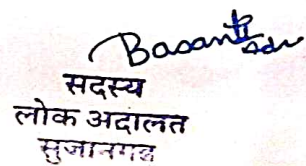 Basanti
सदस्य
लोक अदालत
सुजानगढ